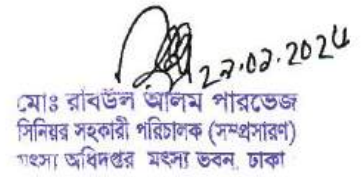 ২২.০২.২০২৪
মোঃ রবিউল আলম পারভেজ
সিনিয়র সহকারী পরিচালক (সম্প্রসারণ)
মৎস্য অধিদপ্তর মৎস্য ভবন, ঢাকা